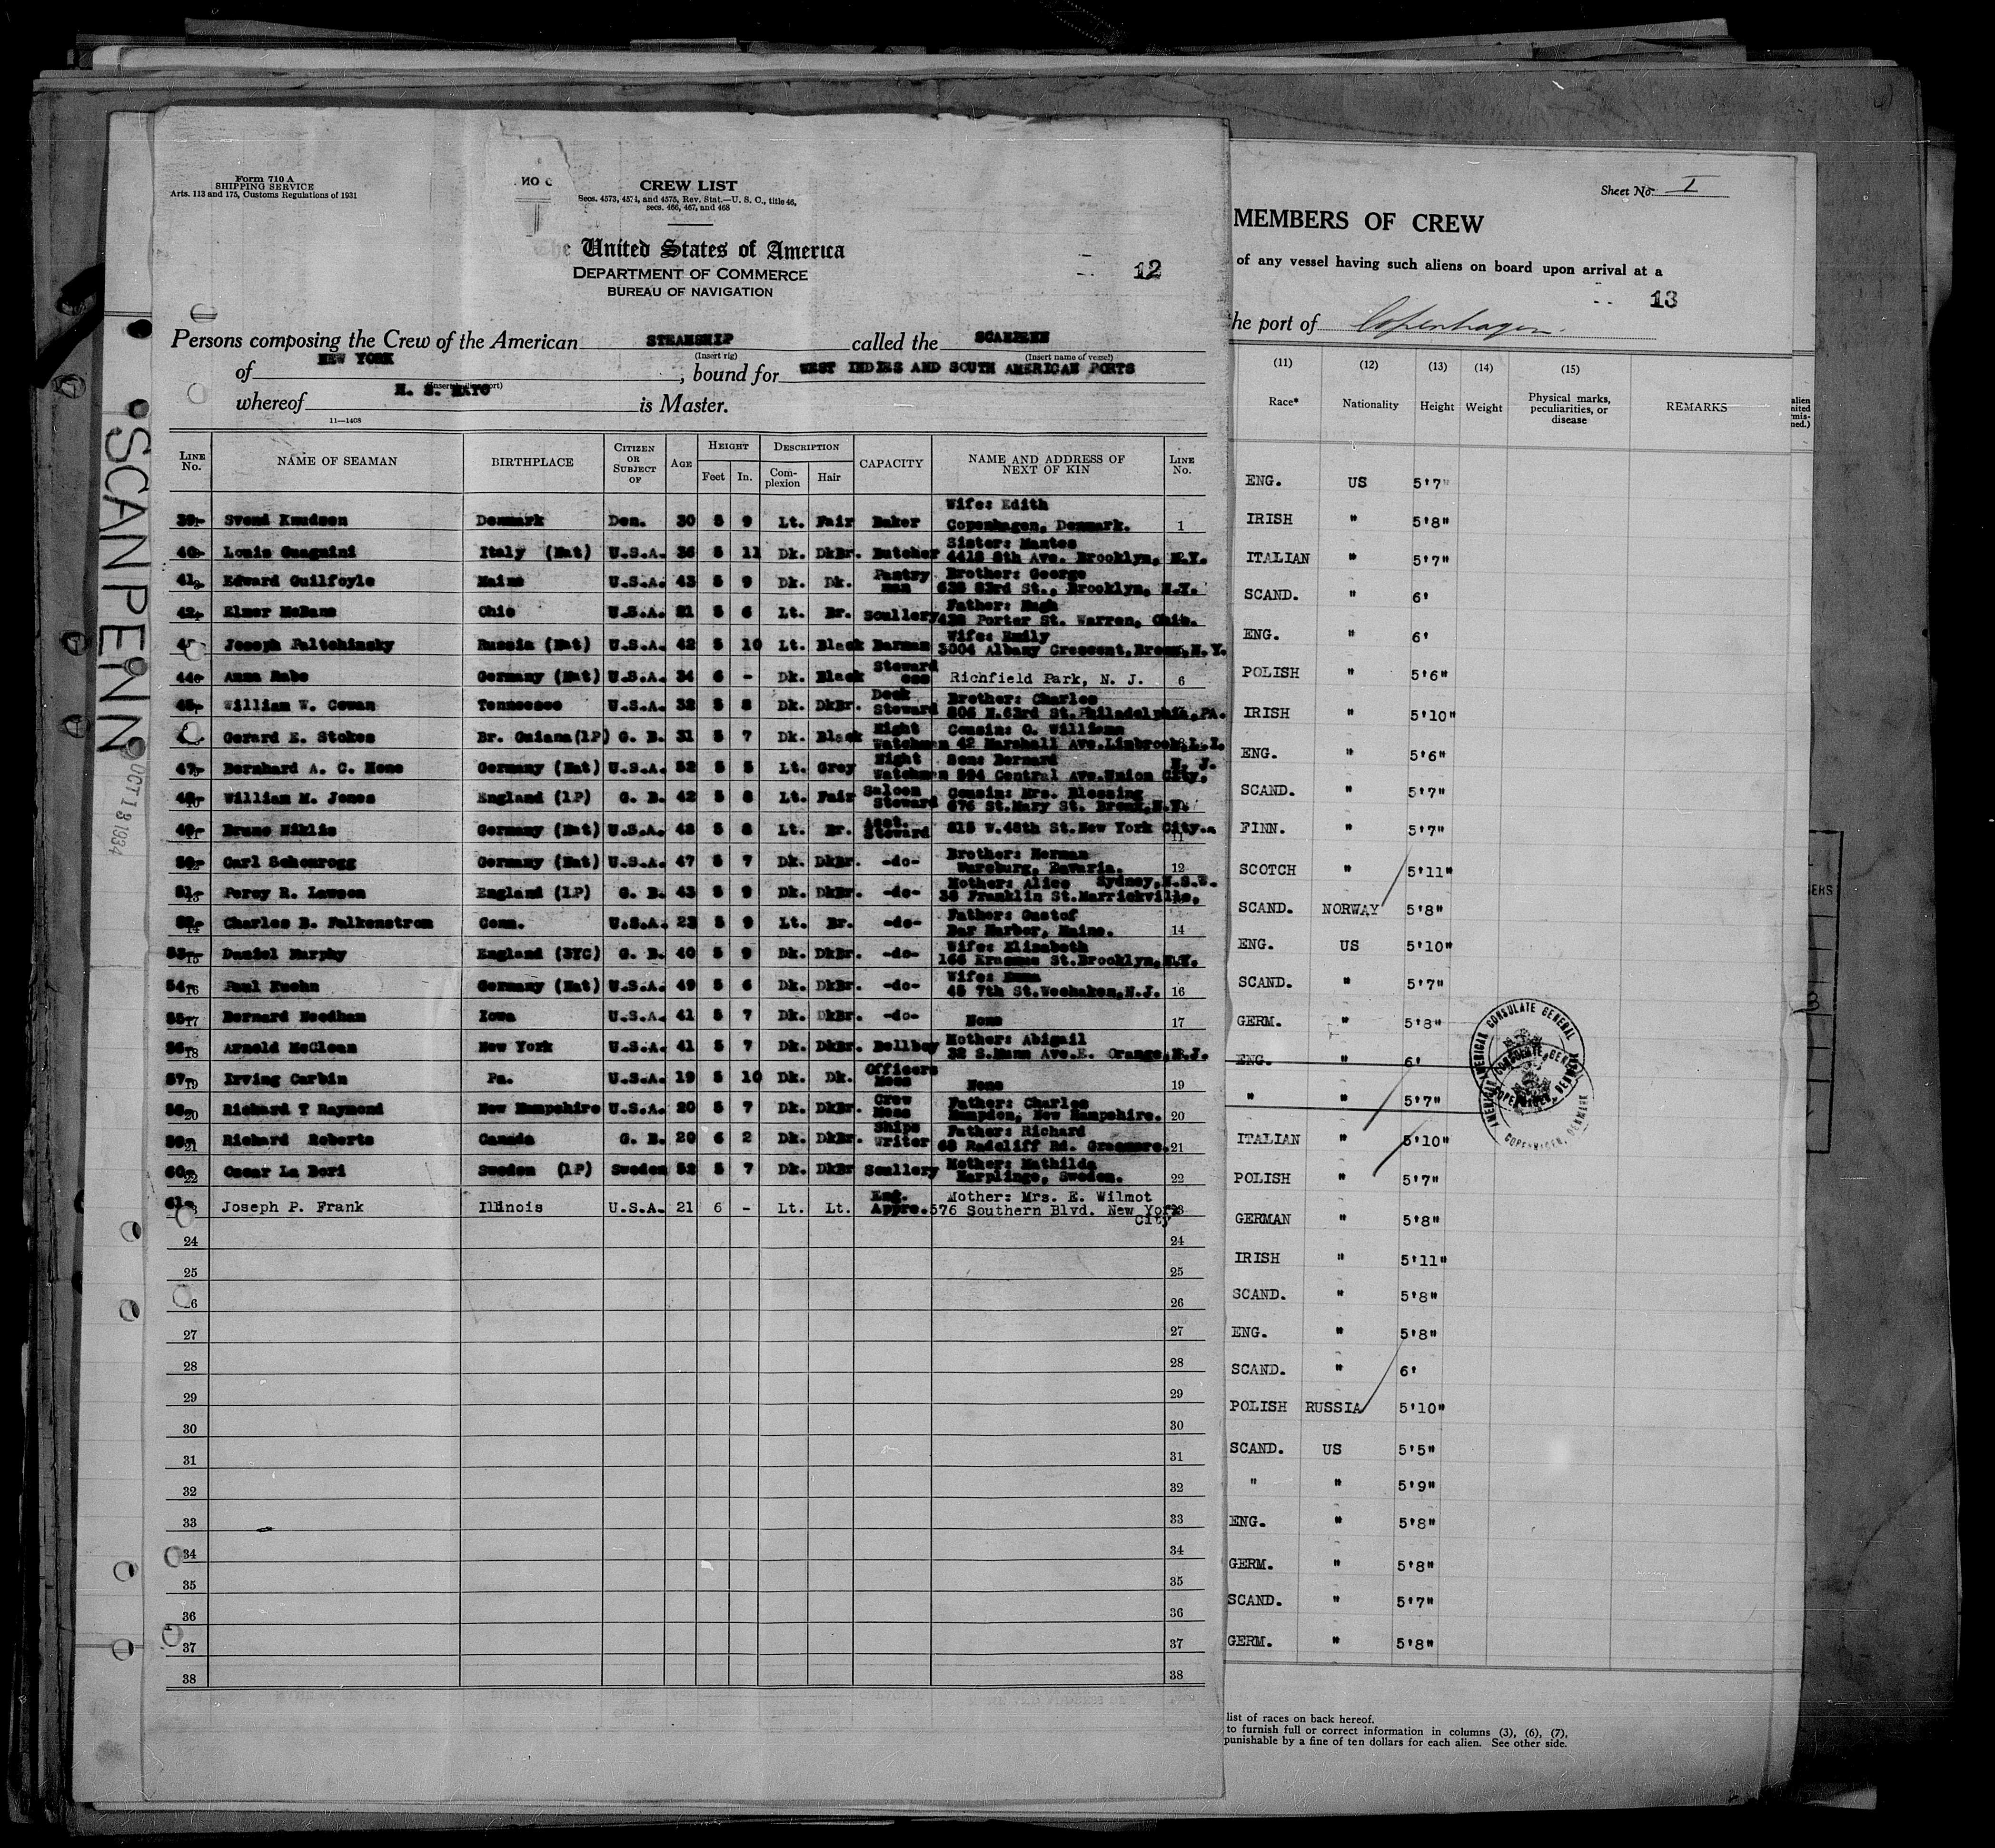 Form 710 A
SHIPPING SERVICE
Arts. 113 and 175, Customs Regulations of 1931
CREW LIST
Secs. 4573, 4574, and 4575, Rev. Stat.—U. S. C., title 46,
secs. 466, 467, and 468
The United States of America
DEPARTMENT OF COMMERCE
BUREAU OF NAVIGATION
12
Persons composing the Crew of the American STEAMSHIP called the SCANPENN
(Insert rig) (Insert name of vessel)
of NEW YORK, bound for WEST INDIES AND SOUTH AMERICAN PORTS
whereof H. S. MAYO is Master.
11—1408
LINE No. NAME OF SEAMAN BIRTHPLACE CITIZEN OR SUBJECT OF AGE HEIGHT Feet In. DESCRIPTION Complexion Hair CAPACITY NAME AND ADDRESS OF NEXT OF KIN LINE No.
39- Svend Knudsen Denmark Den. 30 5 9 Lt. Fair Baker Wife: Edith Copenhagen, Denmark. 1
40- Louis Italy (Nat) U.S.A. 36 5 11 Dk. DkBr. Butcher Sister: 4418 8th Ave. Brooklyn, N.Y.
41- Edward Guilfoyle Maine U.S.A. 43 5 9 Dk. Dk. Pantry man Brother: George 83rd St., Brooklyn, N.Y.
42- Elmer McBane Ohio U.S.A. 21 5 6 Lt. Br. Scullery Father: Hugh Porter St. Warren, Ohio.
Joseph Paltchinsky Russia (Nat) U.S.A. 42 5 10 Lt. Black Barman Wife: Emily 3004 Albany Crescent, Bronx, N.Y.
44- Anna Rabe Germany (Nat) U.S.A. 34 6 - Dk. Black Steward ess Richfield Park, N. J. 6
45- William W. Cowan Tennessee U.S.A. 32 5 8 Dk. DkBr. Deck Steward Brother: Charles N.63rd St. Philadelphia, PA.
Gerard E. Stokes Br. Guiana (1P) G. B. 31 5 7 Dk. Black Night Watchman Cousin: O. Williams 42 Marshall Ave. Linbrook, L.I.
47- Bernhard A. C. Germany (Nat) U.S.A. 52 5 5 Lt. Grey Night Watchman Son: Bernard 594 Central Ave. Union City, N. J.
48- William M. Jones England (1P) G. B. 42 5 8 Lt. Fair Saloon Steward Cousin: Mrs. Blessing 676 St. Mary St. Bronx, N.Y.
49- Bruno Niklis Germany (Nat) U.S.A. 48 5 8 Lt. Br. Asst. Steward 515 W. 48th St. New York City. 11
50- Carl Schenrogg Germany (Nat) U.S.A. 47 5 7 Dk. DkBr. -do- Brother: Herman Bavaria. 12
51- Percy R. Lawson England (1P) G. B. 43 5 9 Dk. DkBr. -do- Mother: Alice Sydney, N.S.W. 38 Franklin St. Marrickville,
52- Charles B. Falkenstrom Conn. U.S.A. 23 5 9 Lt. Br. -do- Father: Gustof Bar Harbor, Maine. 14
53- Daniel Murphy England (SYC) G. B. 40 5 9 Dk. DkBr. -do- Wife: Elizabeth 166 Erasmus St. Brooklyn, N.Y.
54- Paul Kuehn Germany (Nat) U.S.A. 49 5 6 Dk. DkBr. -do- Wife: Emma 45 7th St. Weehaken, N.J. 16
55- Bernard Needham Iowa U.S.A. 41 5 7 Dk. DkBr. -do- None 17
56- Arnold McClean New York U.S.A. 41 5 7 Dk. DkBr. Bellboy Mother: Abigail 32 S. Munn Ave. E. Orange, N.J.
57- Irving Carbin Pa. U.S.A. 19 5 10 Dk. Dk. Officers Mess None 19
58- Richard T Raymond New Hampshire U.S.A. 20 5 7 Dk. DkBr. Crew Mess Father: Charles Hampden, New Hampshire. 20
59- Richard Roberts Canada G. B. 20 6 2 Dk. DkBr. Ships Writer Father: Richard 68 Radcliff Rd. 21
60- Oscar La Bori Sweden (1P) Sweden 52 5 7 Dk. DkBr Scullery Mother: Mathilda Harplinge, Sweden. 22
61- Joseph P. Frank Illinois U.S.A. 21 6 - Lt. Lt. Eng. Appre. Mother: Mrs. E. Wilmot 576 Southern Blvd. New York City 23
24 24
25 25
26 26
27 27
28 28
29 29
30 30
31 31
32 32
33 33
34 34
35 35
36 36
37 37
38 38
"SCANPENN"
OCT 13 1934
Sheet No. I
MEMBERS OF CREW
of any vessel having such aliens on board upon arrival at a
13
the port of Copenhagen.
(11) (12) (13) (14) (15)
Race* Nationality Height Weight Physical marks, peculiarities, or disease REMARKS
ENG. US 5'7"
IRISH " 5'8"
ITALIAN " 5'7"
SCAND. " 6'
ENG. " 6'
POLISH " 5'6"
IRISH " 5'10"
ENG. " 5'6"
SCAND. " 5'7"
FINN. " 5'7"
SCOTCH " 5'11"
SCAND. NORWAY 5'8"
ENG. US 5'10"
SCAND. " 5'7"
GERM. " 5'8"
ENG. " 6'
" " 5'7"
ITALIAN " 5'10"
POLISH " 5'7"
GERMAN " 5'8"
IRISH " 5'11"
SCAND. " 5'8"
ENG. " 5'8"
SCAND. " 6'
POLISH RUSSIA 5'10"
SCAND. US 5'5"
" " 5'9"
ENG. " 5'8"
GERM. " 5'8"
SCAND. " 5'7"
GERM. " 5'8"
AMERICAN CONSULATE GENERAL
COPENHAGEN, DENMARK
list of races on back hereof.
to furnish full or correct information in columns (3), (6), (7),
punishable by a fine of ten dollars for each alien. See other side.